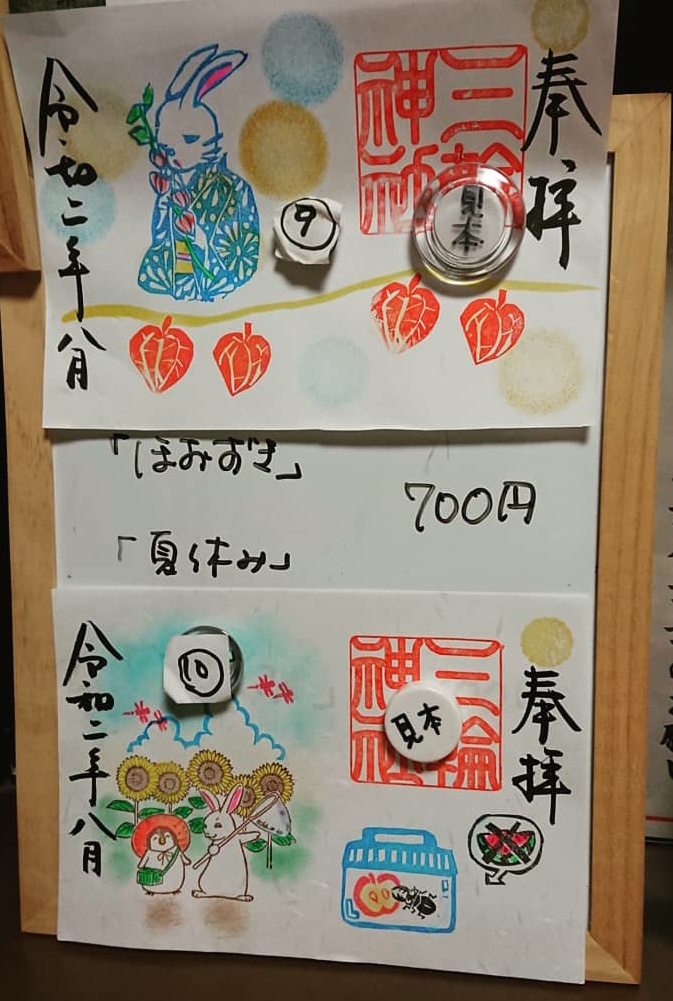 奉拝
三輪
神社
見本
⑨
令和二年八月
「ほおずき」
700円
「夏休み」
奉拝
三輪
神社
見本
⑩
令和二年八月